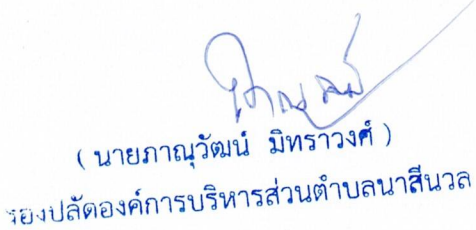 ( นายภาณุวัฒน์ มิทราวงศ์ )
รองปลัดองค์การบริหารส่วนตำบลนาสีนวล